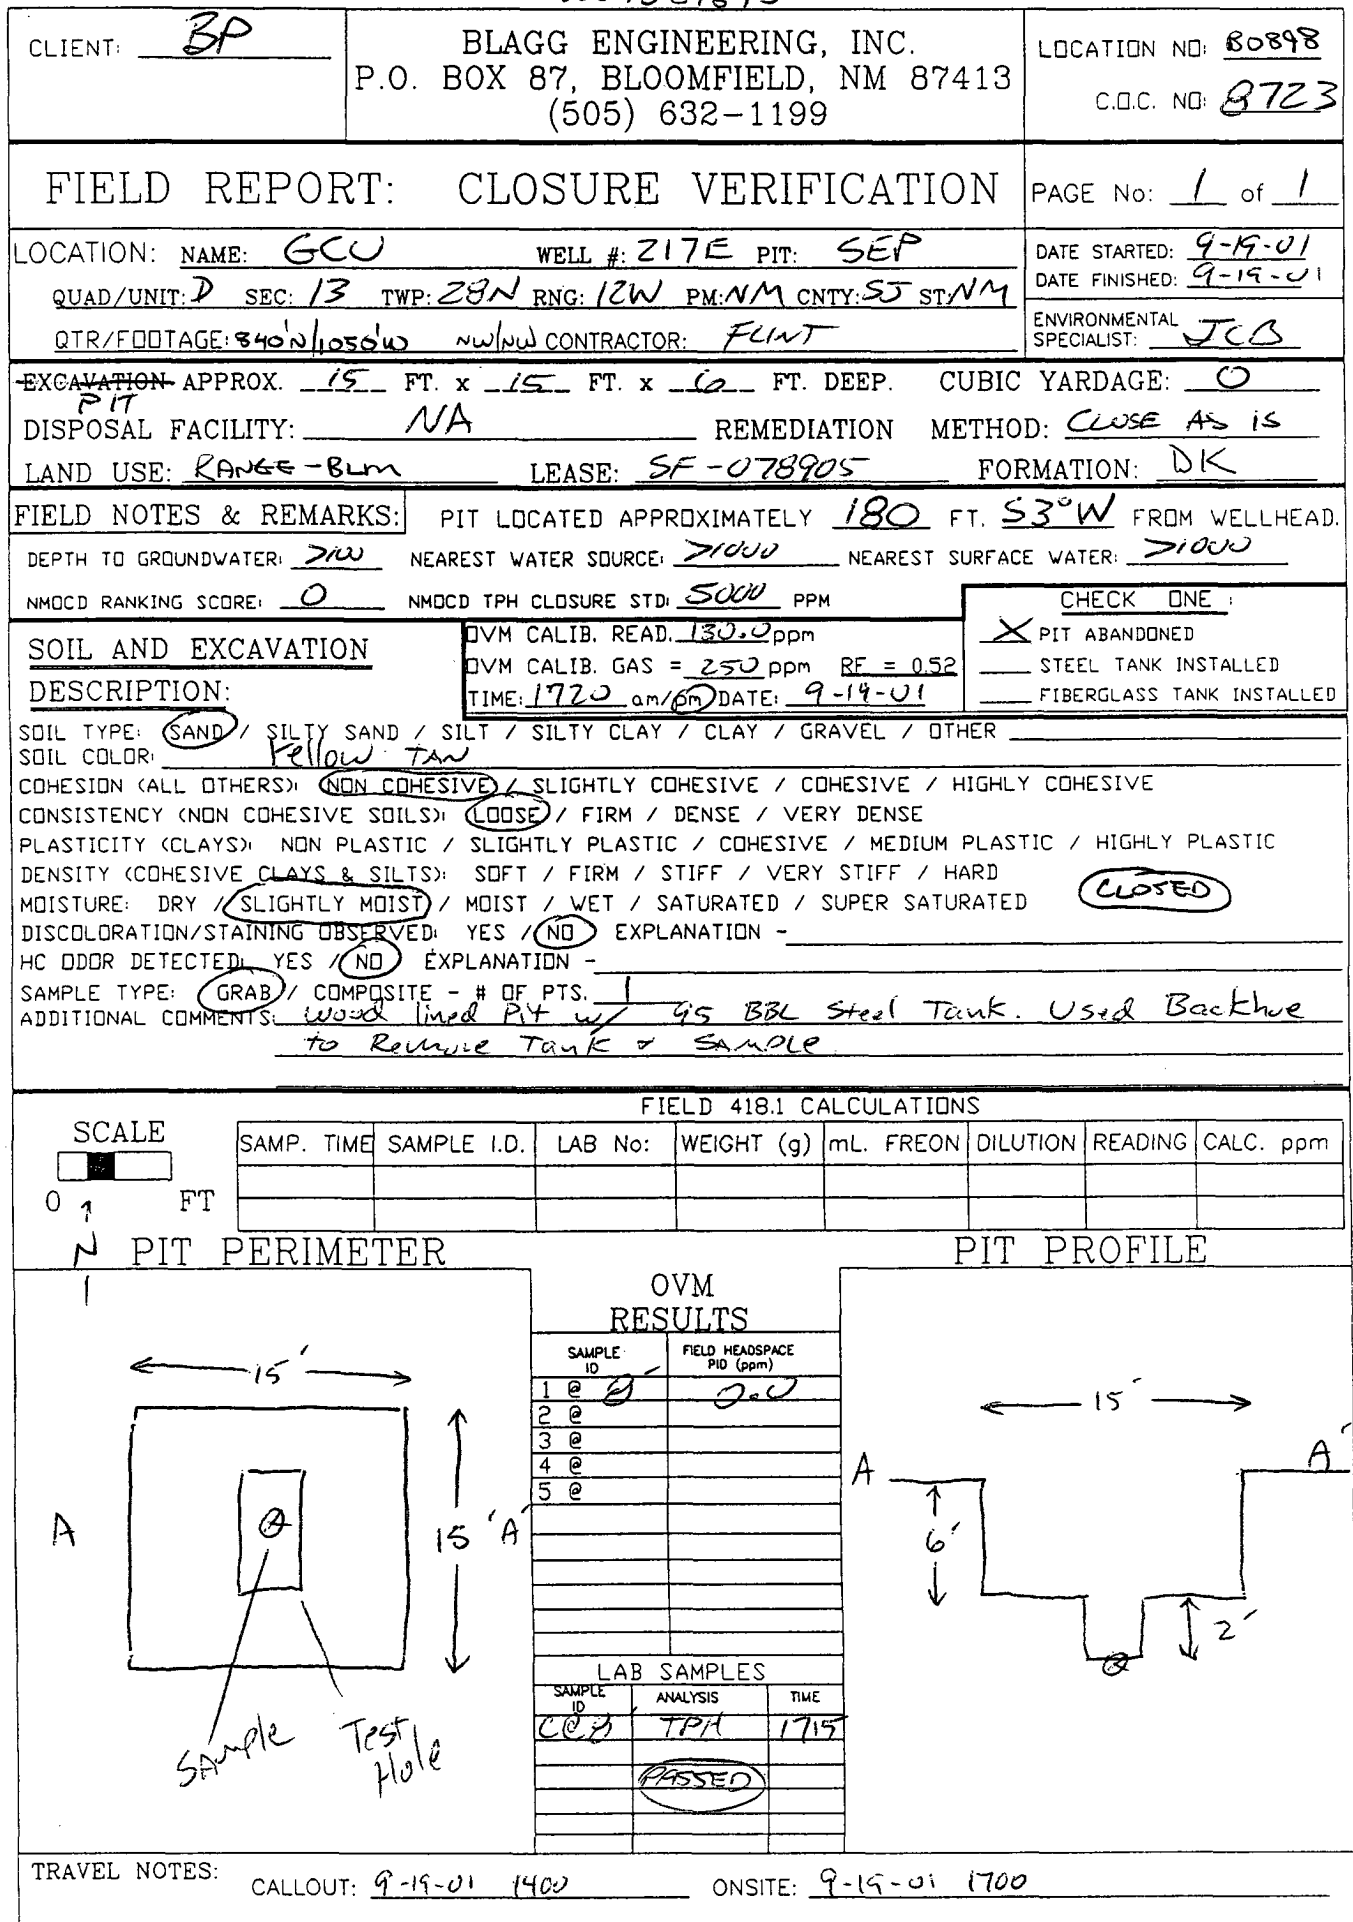 CLIENT: BP
BLAGG ENGINEERING, INC.
P.O. BOX 87, BLOOMFIELD, NM 87413
(505) 632-1199
LOCATION NO: B0898
C.O.C. NO: 8723
FIELD REPORT: CLOSURE VERIFICATION
PAGE No: 1 of 1
LOCATION: NAME: GCU WELL #: 217E PIT: SEP
QUAD/UNIT: D SEC: 13 TWP: 28N RNG: 12W PM: NM CNTY: SJ ST: NM
QTR/FOOTAGE: 840'N/1050'W NW/NW CONTRACTOR: FLINT
DATE STARTED: 9-19-01
DATE FINISHED: 9-19-01
ENVIRONMENTAL
SPECIALIST: JCB
EXCAVATION APPROX. 15 FT. x 15 FT. x 6 FT. DEEP. CUBIC YARDAGE: 0
PIT
DISPOSAL FACILITY: NA REMEDIATION METHOD: CLOSE AS IS
LAND USE: RANGE-BLM LEASE: SF-078905 FORMATION: DK
FIELD NOTES & REMARKS: PIT LOCATED APPROXIMATELY 180 FT. S3°W FROM WELLHEAD.
DEPTH TO GROUNDWATER: >100 NEAREST WATER SOURCE: >1000 NEAREST SURFACE WATER: >1000
NMOCD RANKING SCORE: 0 NMOCD TPH CLOSURE STD: 5000 PPM
CHECK ONE :
X PIT ABANDONED
STEEL TANK INSTALLED
FIBERGLASS TANK INSTALLED
SOIL AND EXCAVATION
DESCRIPTION:
OVM CALIB. READ. 130.0 ppm
OVM CALIB. GAS = 250 ppm RF = 0.52
TIME: 1720 am/pm DATE: 9-19-01
SOIL TYPE: SAND / SILTY SAND / SILT / SILTY CLAY / CLAY / GRAVEL / OTHER
SOIL COLOR: Yellow TAN
COHESION (ALL OTHERS): NON COHESIVE / SLIGHTLY COHESIVE / COHESIVE / HIGHLY COHESIVE
CONSISTENCY (NON COHESIVE SOILS): LOOSE / FIRM / DENSE / VERY DENSE
PLASTICITY (CLAYS): NON PLASTIC / SLIGHTLY PLASTIC / COHESIVE / MEDIUM PLASTIC / HIGHLY PLASTIC
DENSITY (COHESIVE CLAYS & SILTS): SOFT / FIRM / STIFF / VERY STIFF / HARD
MOISTURE: DRY / SLIGHTLY MOIST / MOIST / WET / SATURATED / SUPER SATURATED CLOSED
DISCOLORATION/STAINING OBSERVED: YES / NO EXPLANATION -
HC ODOR DETECTED: YES / NO EXPLANATION -
SAMPLE TYPE: GRAB / COMPOSITE - # OF PTS. 1
ADDITIONAL COMMENTS: Wood lined Pit w/ 95 BBL Steel Tank. Used Backhoe
to Remove Tank & SAMPLE
FIELD 418.1 CALCULATIONS
SCALE
0 FT
SAMP. TIME SAMPLE I.D. LAB No: WEIGHT (g) mL. FREON DILUTION READING CALC. ppm
N
PIT PERIMETER
PIT PROFILE
OVM
RESULTS
SAMPLE ID FIELD HEADSPACE PID (ppm)
1 @ 8' 0.0
2 @
3 @
4 @
5 @
15'
A
15'
A'
Sample
Test
Hole
LAB SAMPLES
SAMPLE ID ANALYSIS TIME
C@8' TPH 1715
PASSED
15'
A
A'
6'
2'
TRAVEL NOTES: CALLOUT: 9-19-01 1400 ONSITE: 9-19-01 1700